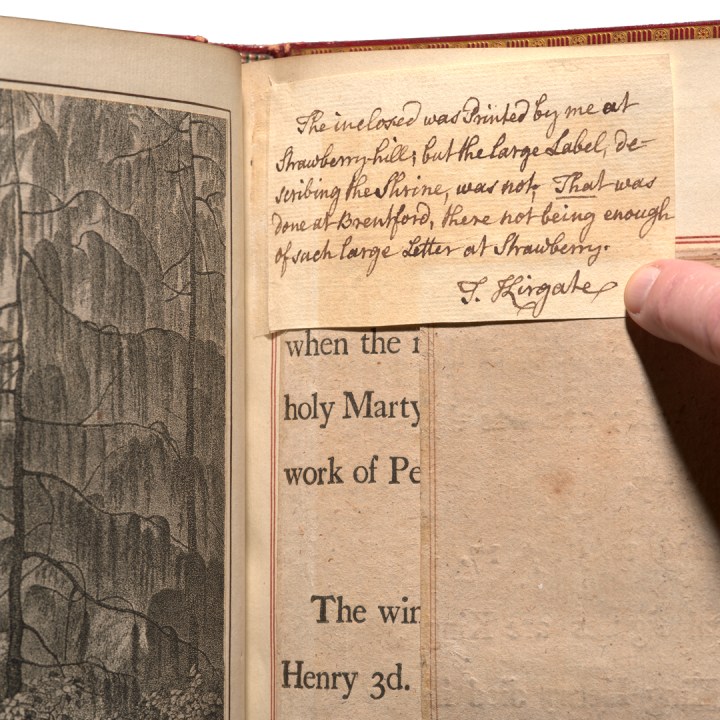 The inclosed was Printed by me at
Strawberry-hill; but the large Label, de-
scribing the Shrine, was not; That was
done at Brentford, there not being enough
of such large Letter at Strawberry.
T. Kirgate
when the
holy Marty
work of Pe
The win
Henry 3d.